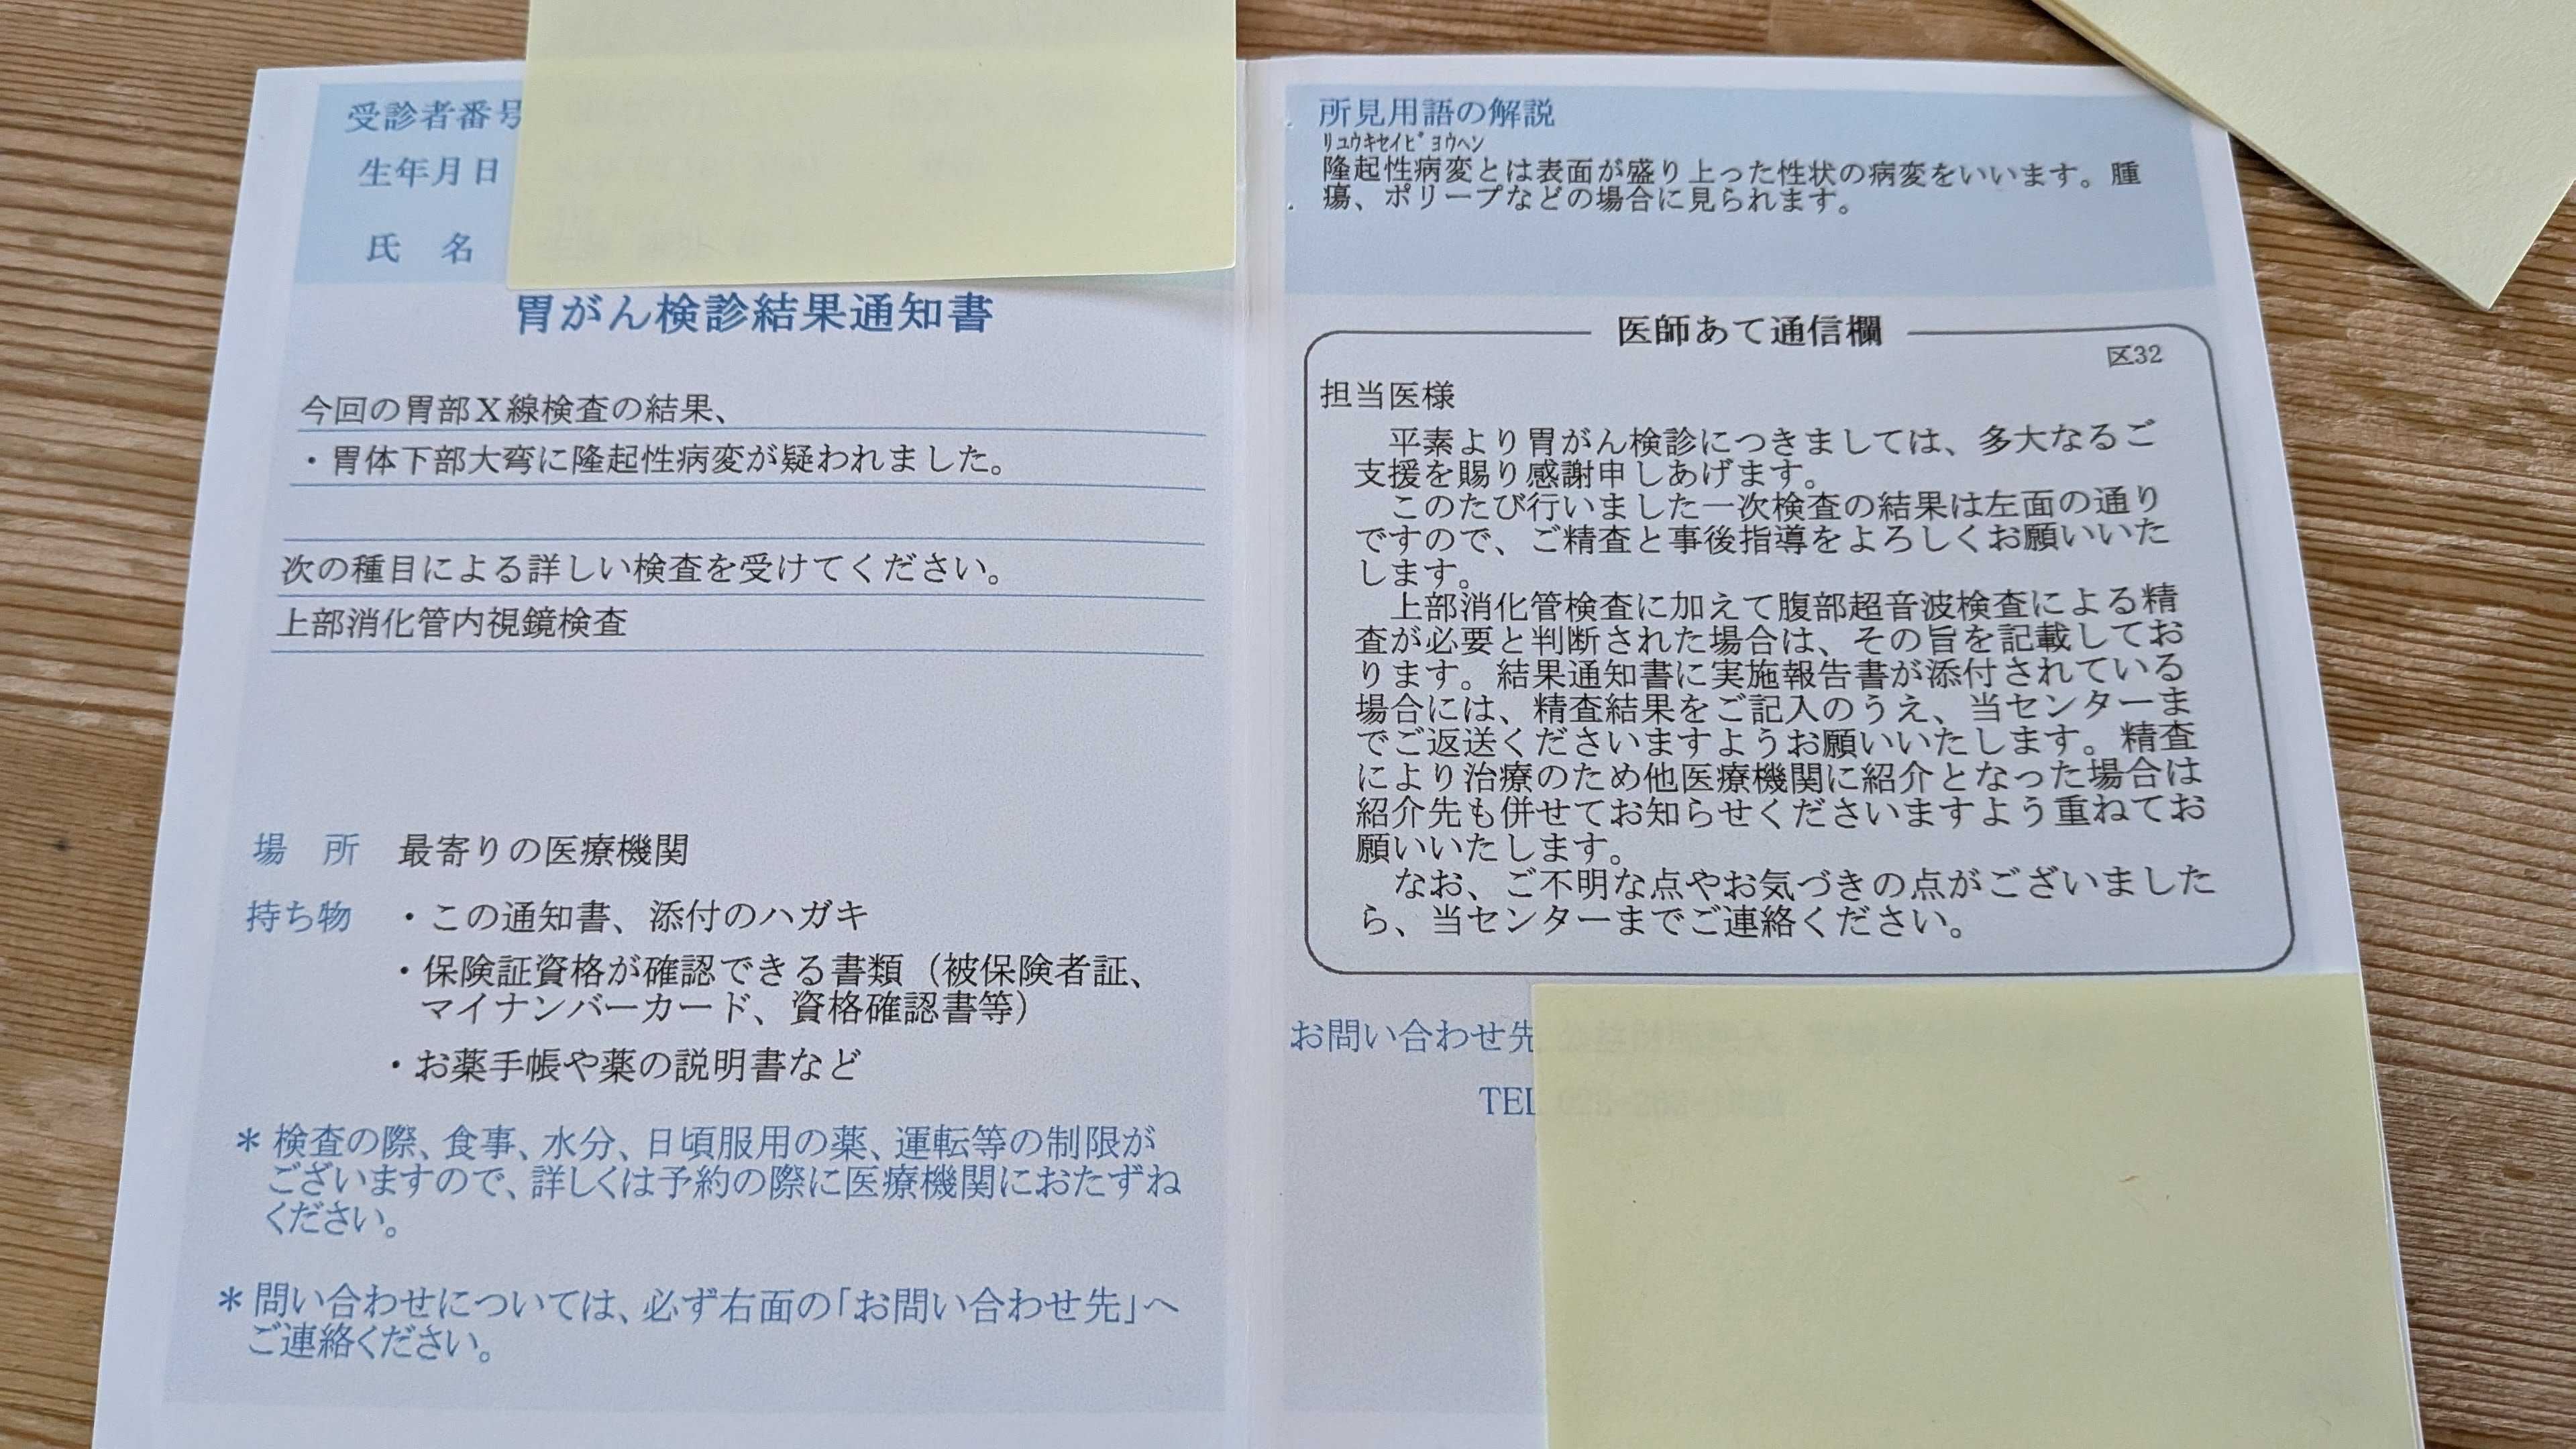 受診者番号
生年月日
氏 名
胃がん検診結果通知書
今回の胃部X線検査の結果、
・胃体下部大弯に隆起性病変が疑われました。
次の種目による詳しい検査を受けてください。
上部消化管内視鏡検査
場 所 最寄りの医療機関
持ち物 ・この通知書、添付のハガキ
・保険証資格が確認できる書類（被保険者証、
マイナンバーカード、資格確認書等）
・お薬手帳や薬の説明書など
＊検査の際、食事、水分、日頃服用の薬、運転等の制限が
ございますので、詳しくは予約の際に医療機関におたずね
ください。
＊問い合わせについては、必ず右面の「お問い合わせ先」へ
ご連絡ください。
所見用語の解説
ﾘｭｳｷｾｲﾋﾞｮｳﾍﾝ
隆起性病変とは表面が盛り上った性状の病変をいいます。腫
瘍、ポリープなどの場合に見られます。
医師あて通信欄
区32
担当医様
平素より胃がん検診につきましては、多大なるご
支援を賜り感謝申しあげます。
このたび行いました一次検査の結果は左面の通り
ですので、ご精査と事後指導をよろしくお願いいた
します。
上部消化管検査に加えて腹部超音波検査による精
査が必要と判断された場合は、その旨を記載してお
ります。結果通知書に実施報告書が添付されている
場合には、精査結果をご記入のうえ、当センターま
でご返送くださいますようお願いいたします。精査
により治療のため他医療機関に紹介となった場合は
紹介先も併せてお知らせくださいますよう重ねてお
願いいたします。
なお、ご不明な点やお気づきの点がございました
ら、当センターまでご連絡ください。
お問い合わせ先
TEL